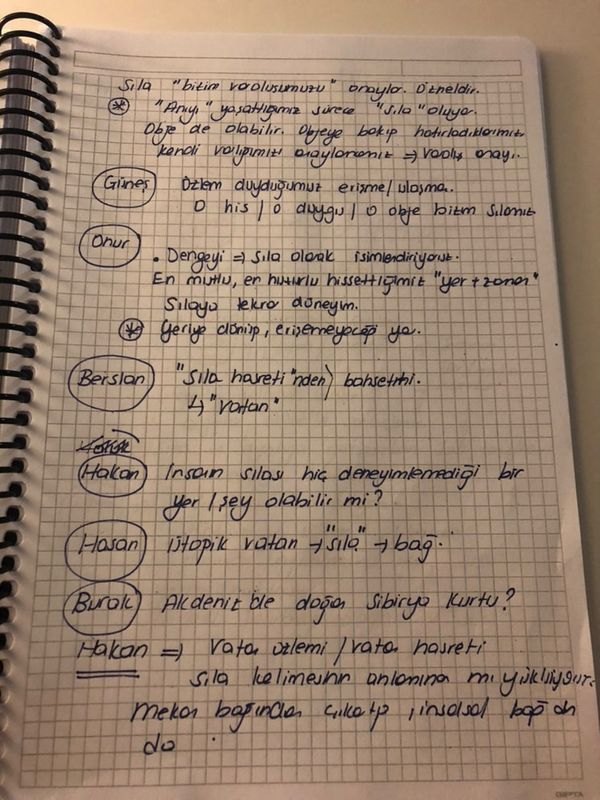 Sıla "bizim varoluşumuzu" onaylar. Özneldir.
* "Anıyı" yaşattığımız sürece "sıla" oluyor.
Obje de olabilir. Objeye bakıp hatırladıklarımız
kendi varlığımızı onaylamamız ⇒ varoluş onayı.
Güneş Özlem duyduğumuz erişme/ulaşma.
O his / o duygu / o obje bizim sılamız
Onur
• Dengeyi ⇒ sıla olarak isimlendiriyoruz.
En mutlu, en huzurlu hissettiğimiz "yer + zaman"
Sılaya tekrar döneyim.
* Geriye dönüp, erişemeyeceği ya.
Berslan "Sıla hasreti"nden bahsetti.
↳ "Vatan"
Hakan İnsanın sılası hiç deneyimlemediği bir
yer / şey olabilir mi?
Hasan Ütopik vatan → "sıla" → bağ.
Burak Akdeniz'de doğan Sibirya Kurtu?
Hakan ⇒ Vatan özlemi / vatan hasreti
sıla kelimesinin anlamına mı yüklüyoruz
Mekan bağından çıkarıp, insansal bağ da
da.
GIPTA